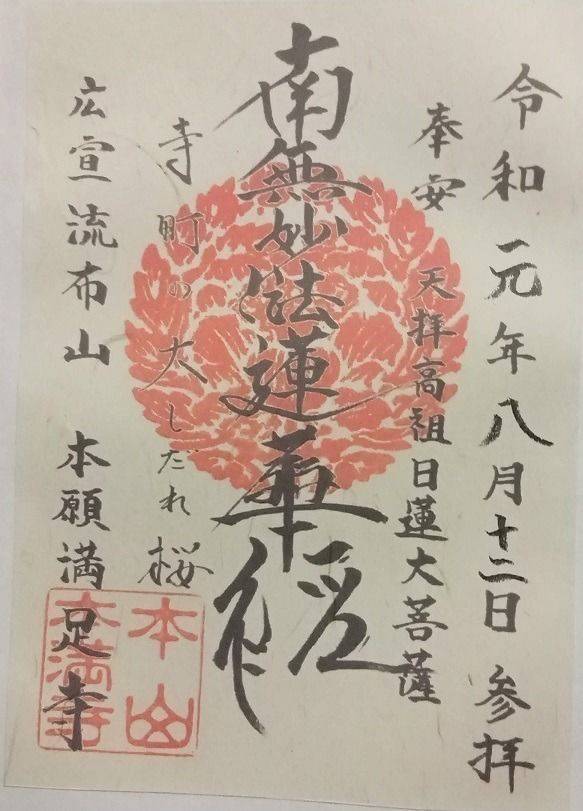 令和元年八月十二日 参拝
奉安 天拝高祖日蓮大菩薩
南無妙法蓮華経
寺町の大しだれ桜
広宣流布山 本願満足寺
本山
本満寺